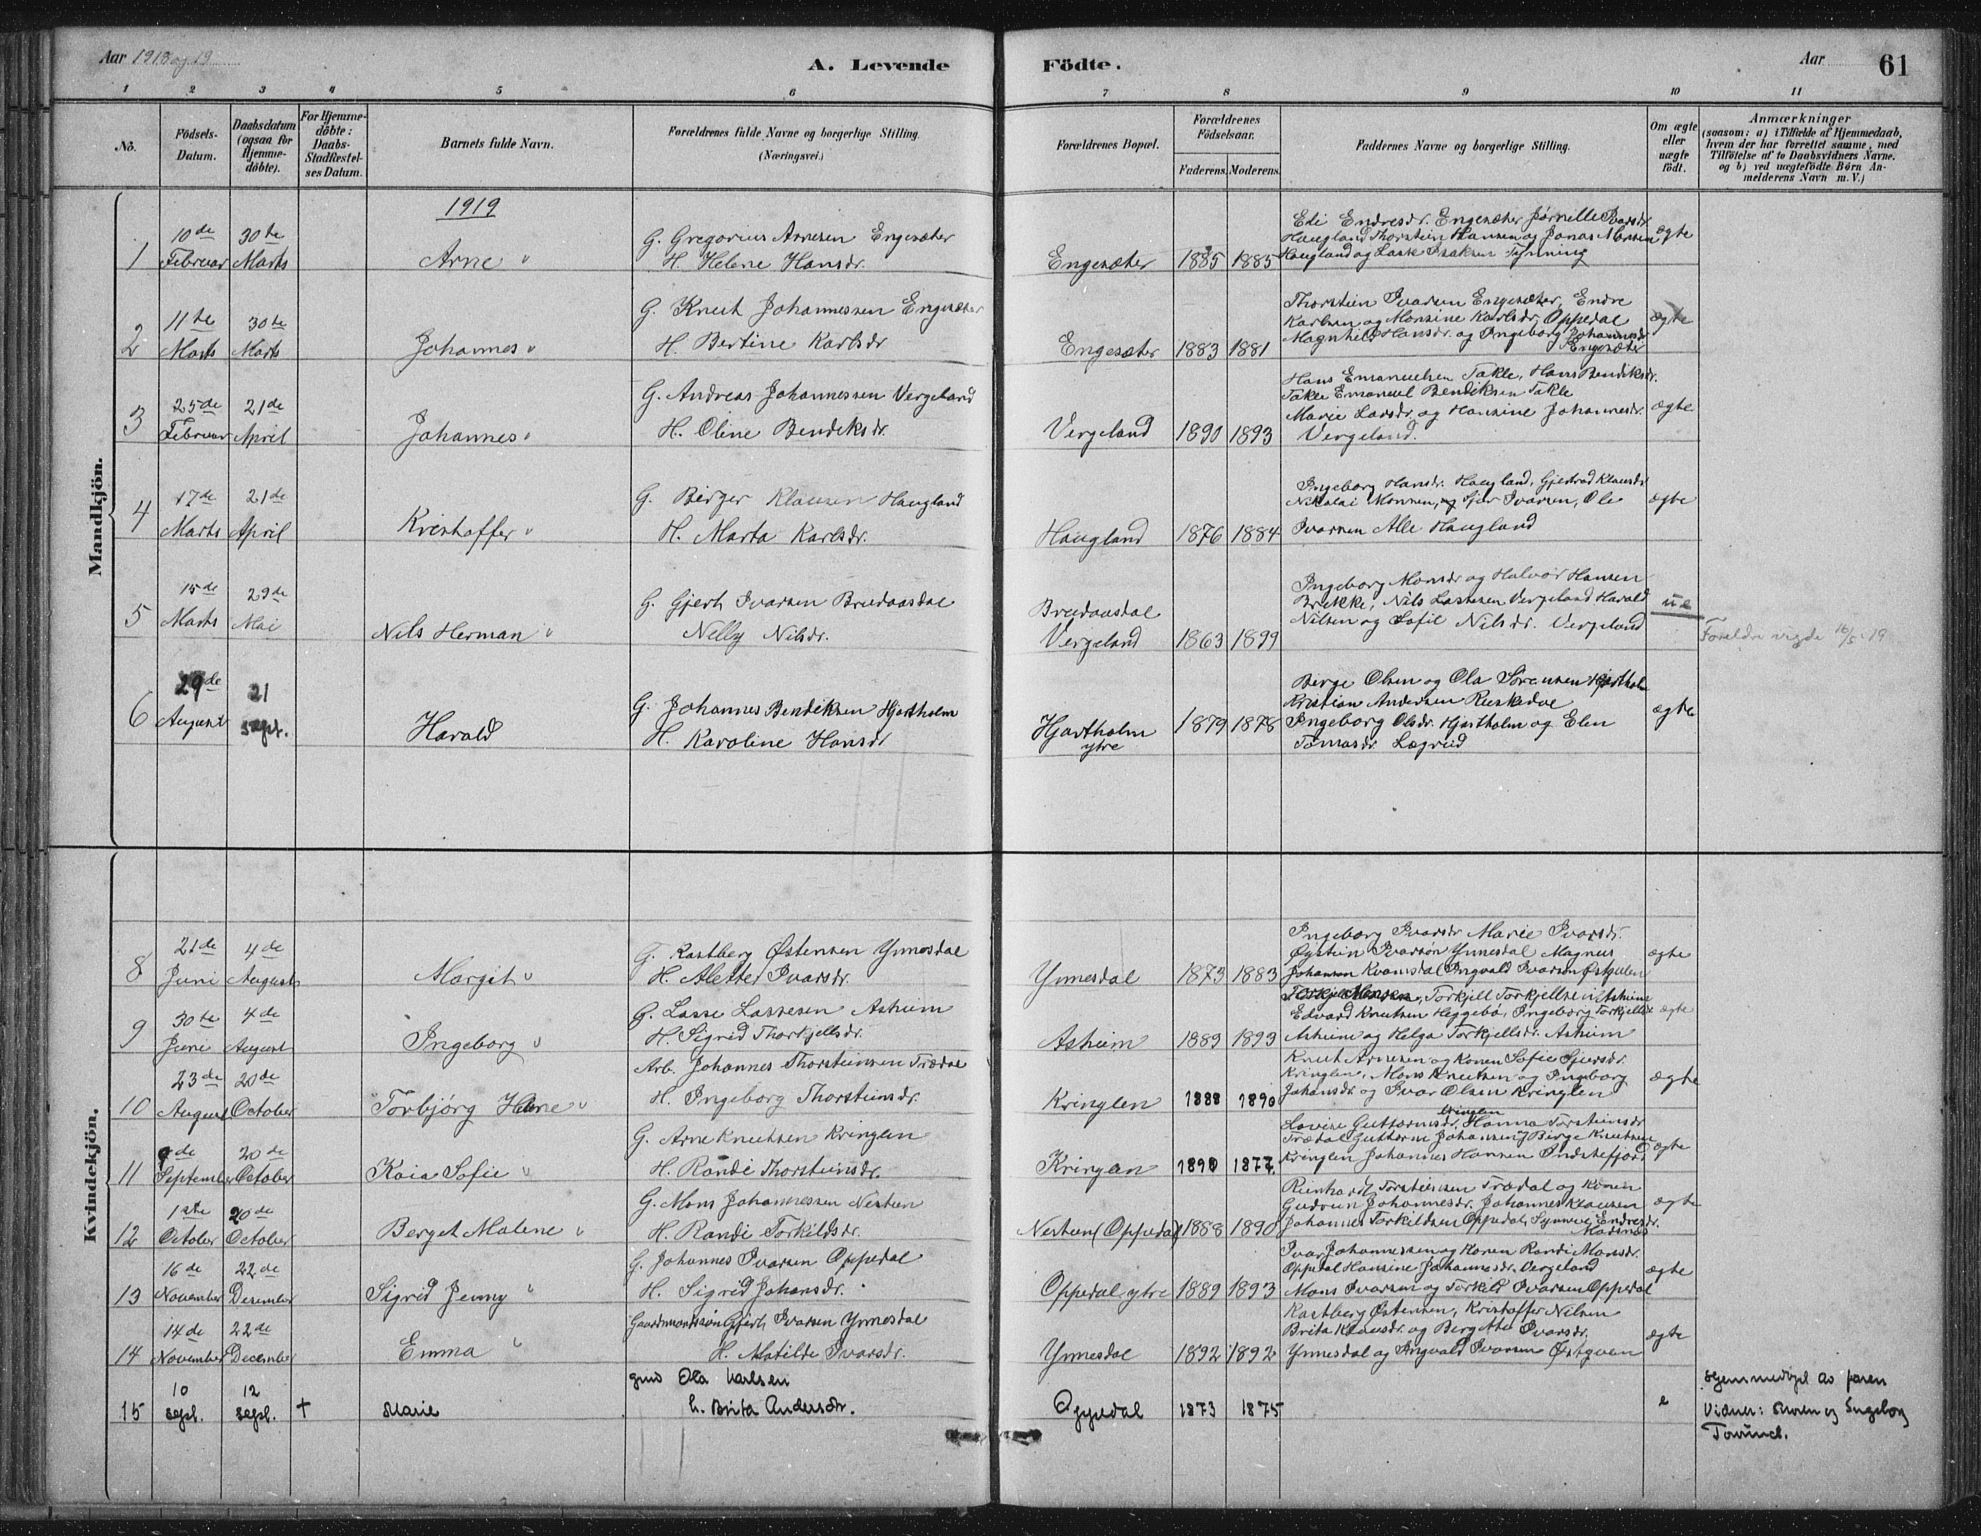 Aar 1918 og 19
A. Levende Födte.
Aar
61
1 2 3 4 5 6 7 8 9 10 11
No.
Födsels-Datum.
Daabsdatum (ogsaa for Hjemme-döbte).
For Hjemme-döbte: Daabs-Stadfæstel-ses Datum.
Barnets fulde Navn.
Forældrenes fulde Navne og borgerlige Stilling.
(Næringsvei.)
Forældrenes Bopæl.
Forældrenes Födselsaar.
Faderens. Moderens.
Faddernes Navne og borgerlige Stilling.
Om ægte eller uægte födt.
Anmærkninger
(saasom: a) i Tilfælde af Hjemmedaab, hvem der har forrettet samme, med Tilföielse af to Daabsvidners Navne, og b) ved uægtefödte Börn An-melderens Navn m. V.)
Mandkjön.
1919
1 10de Februar 30te Marts Arne G. Gregorius Arnesen Engesæter
H. Helene Hansdr. Engesæter 1885 1885
Edi Endresdr. Engesæter Pernelle Ivarsdr.
Haugland Thorstein Hansen og Jonas Monsen
Haugland og Lasse Isaksen Tynning ægte
2 11te Marts 30te Marts Johannes G. Knut Johannessen Engesæter
H. Bertine Karlsdr Engesæter 1883 1881
Thorstein Ivarsen Engesæter, Endre
Karlsen og Monsine Karlsdr. Oppedal
Magnhild Hansdr. og Ingeborg Johannesdr
Engesæter ægte
3 25de Februar 21de April Johannes G. Andreas Johannessen Vergeland
H. Oline Bendiksdr. Vergeland 1890 1893
Hans Emanuelsen Takle, Hans Bendiksdr.
Takle Emanuel Bendiksen Takle
Marie Larsdr. og Hansine Johannesdr.
Vergeland. ægte
4 17de Marts 21de April Kristoffer G. Birger Klausen Haugland
H. Marta Karlsdr. Haugland 1876 1884
Ingeborg Hansdr. Haugland, Gjertrud Klausdr
Nikolai Monsen, og Sjur Ivarsen, Ole
Ivarsen Alle Haugland ægte
5 15de Marts 29de Mai Nils Herman G. Gjert Ivarsen Breidaasdal
Nelly Nilsdr. Breidaasdal
Vergeland 1863 1899
Ingeborg Monsdr og Halvor Hansen
Brekke, Nils Lassesen Vergeland Harald
Nilsen og Sofie Nilsdr. Vergeland uæ
Foreldre vigde 16/5-19
6 29de August 21 sept. Harald G. Johannes Bendiksen Hjortholm
H. Karoline Hansdr Hjartholm ytre 1879 1878
Berge Olsen og Ola Sörensen Hjartholm
Kristian Andersen Risnedal
Ingeborg Olsdr. Hjartholm og Elen
Tomasdr. Lægreid ægte
Kvindekjön.
8 21de Juni 4de August Margit G. Kastberg Østensen Ynnesdal
H. Alette Ivarsdr. Ynnesdal 1873 1883
Ingeborg Ivarsdr Marie Ivarsdr.
Øystein Ivarsøn Ynnesdal Magnus
Johansen Kvamsdal Ingvald Ivarsen Østgulen ægte
9 30te Juni 4de August Ingeborg G. Lasse Lassesen Asheim
H. Sigrid Thorkjellsdr. Asheim 1889 1893
Torkjell Torkjellsen Asheim
Edvard Knutsen Heggebø, Ingeborg Torkjellsdr
Asheim og Helga Torkjellsdr. Asheim ægte
10 23de August 20de October Torbjörg Helene Arb. Johannes Thorsteinsen Trædal
H. Ingeborg Thorsteinsdr. Kringlen 1888 1890
Knut Arnesen og Konen Sofie Sjursdr.
Kringlen, Mons Knutsen og Ingeborg
Johansdr. og Ivar Olsen Kringlen ægte
11 9de September 20de October Kaia Sofie G. Arne Knutsen Kringlen
H. Randi Thorsteinsdr. Kringlen 1890 1877.
Lovise Guttormsdr. Kringlen Hanna Torsteinsdr
Trædal Guttorm Johansen og Birge Knutsen
Kringlen Johannes Hansen Indrefjord ægte
12 1ste October 20de October Berget Malene G. Mons Johannessen Nestun
H. Randi Torkildsdr. Nestun (Oppedal) 1888 1890
Reinhardt Torsteinsen Trædal og Konen
Gudrun Johannesdr. Johannes Klausen
Johannes Torkildsen Oppedal, Synneve Endresdr.
ægte
13 16de November 22de Desember Sigrid Jenny G. Johannes Ivarsen Oppedal
H. Sigrid Johansdr. Oppedal ytre 1889 1893
Ivar Johannessen og Konen Randi Monsdr.
Oppedal Hansine Johannesdr. Vergeland
Mons Ivarsen og Torkild Ivarsen Oppedal ægte
14 14de November 22de December Emma Gaardmandssön Gjert Ivarsen Ynnesdal
H. Matilde Ivarsdr. Ynnesdal 1892 1892
Kastberg Østensen, Kristoffer Nilsen
Brita Klausdr. og Bergitte Ivarsdr.
Ynnesdal og Ingvald Ivarsen Østgulen ægte
15 10 sept. 12 sept. † Marie gmd Ola Karlsen
h. Brita Andersdr. Oppedal 1873 1875 e
Hjemmedöpt av faren
Vidner: moren og Ingeborg